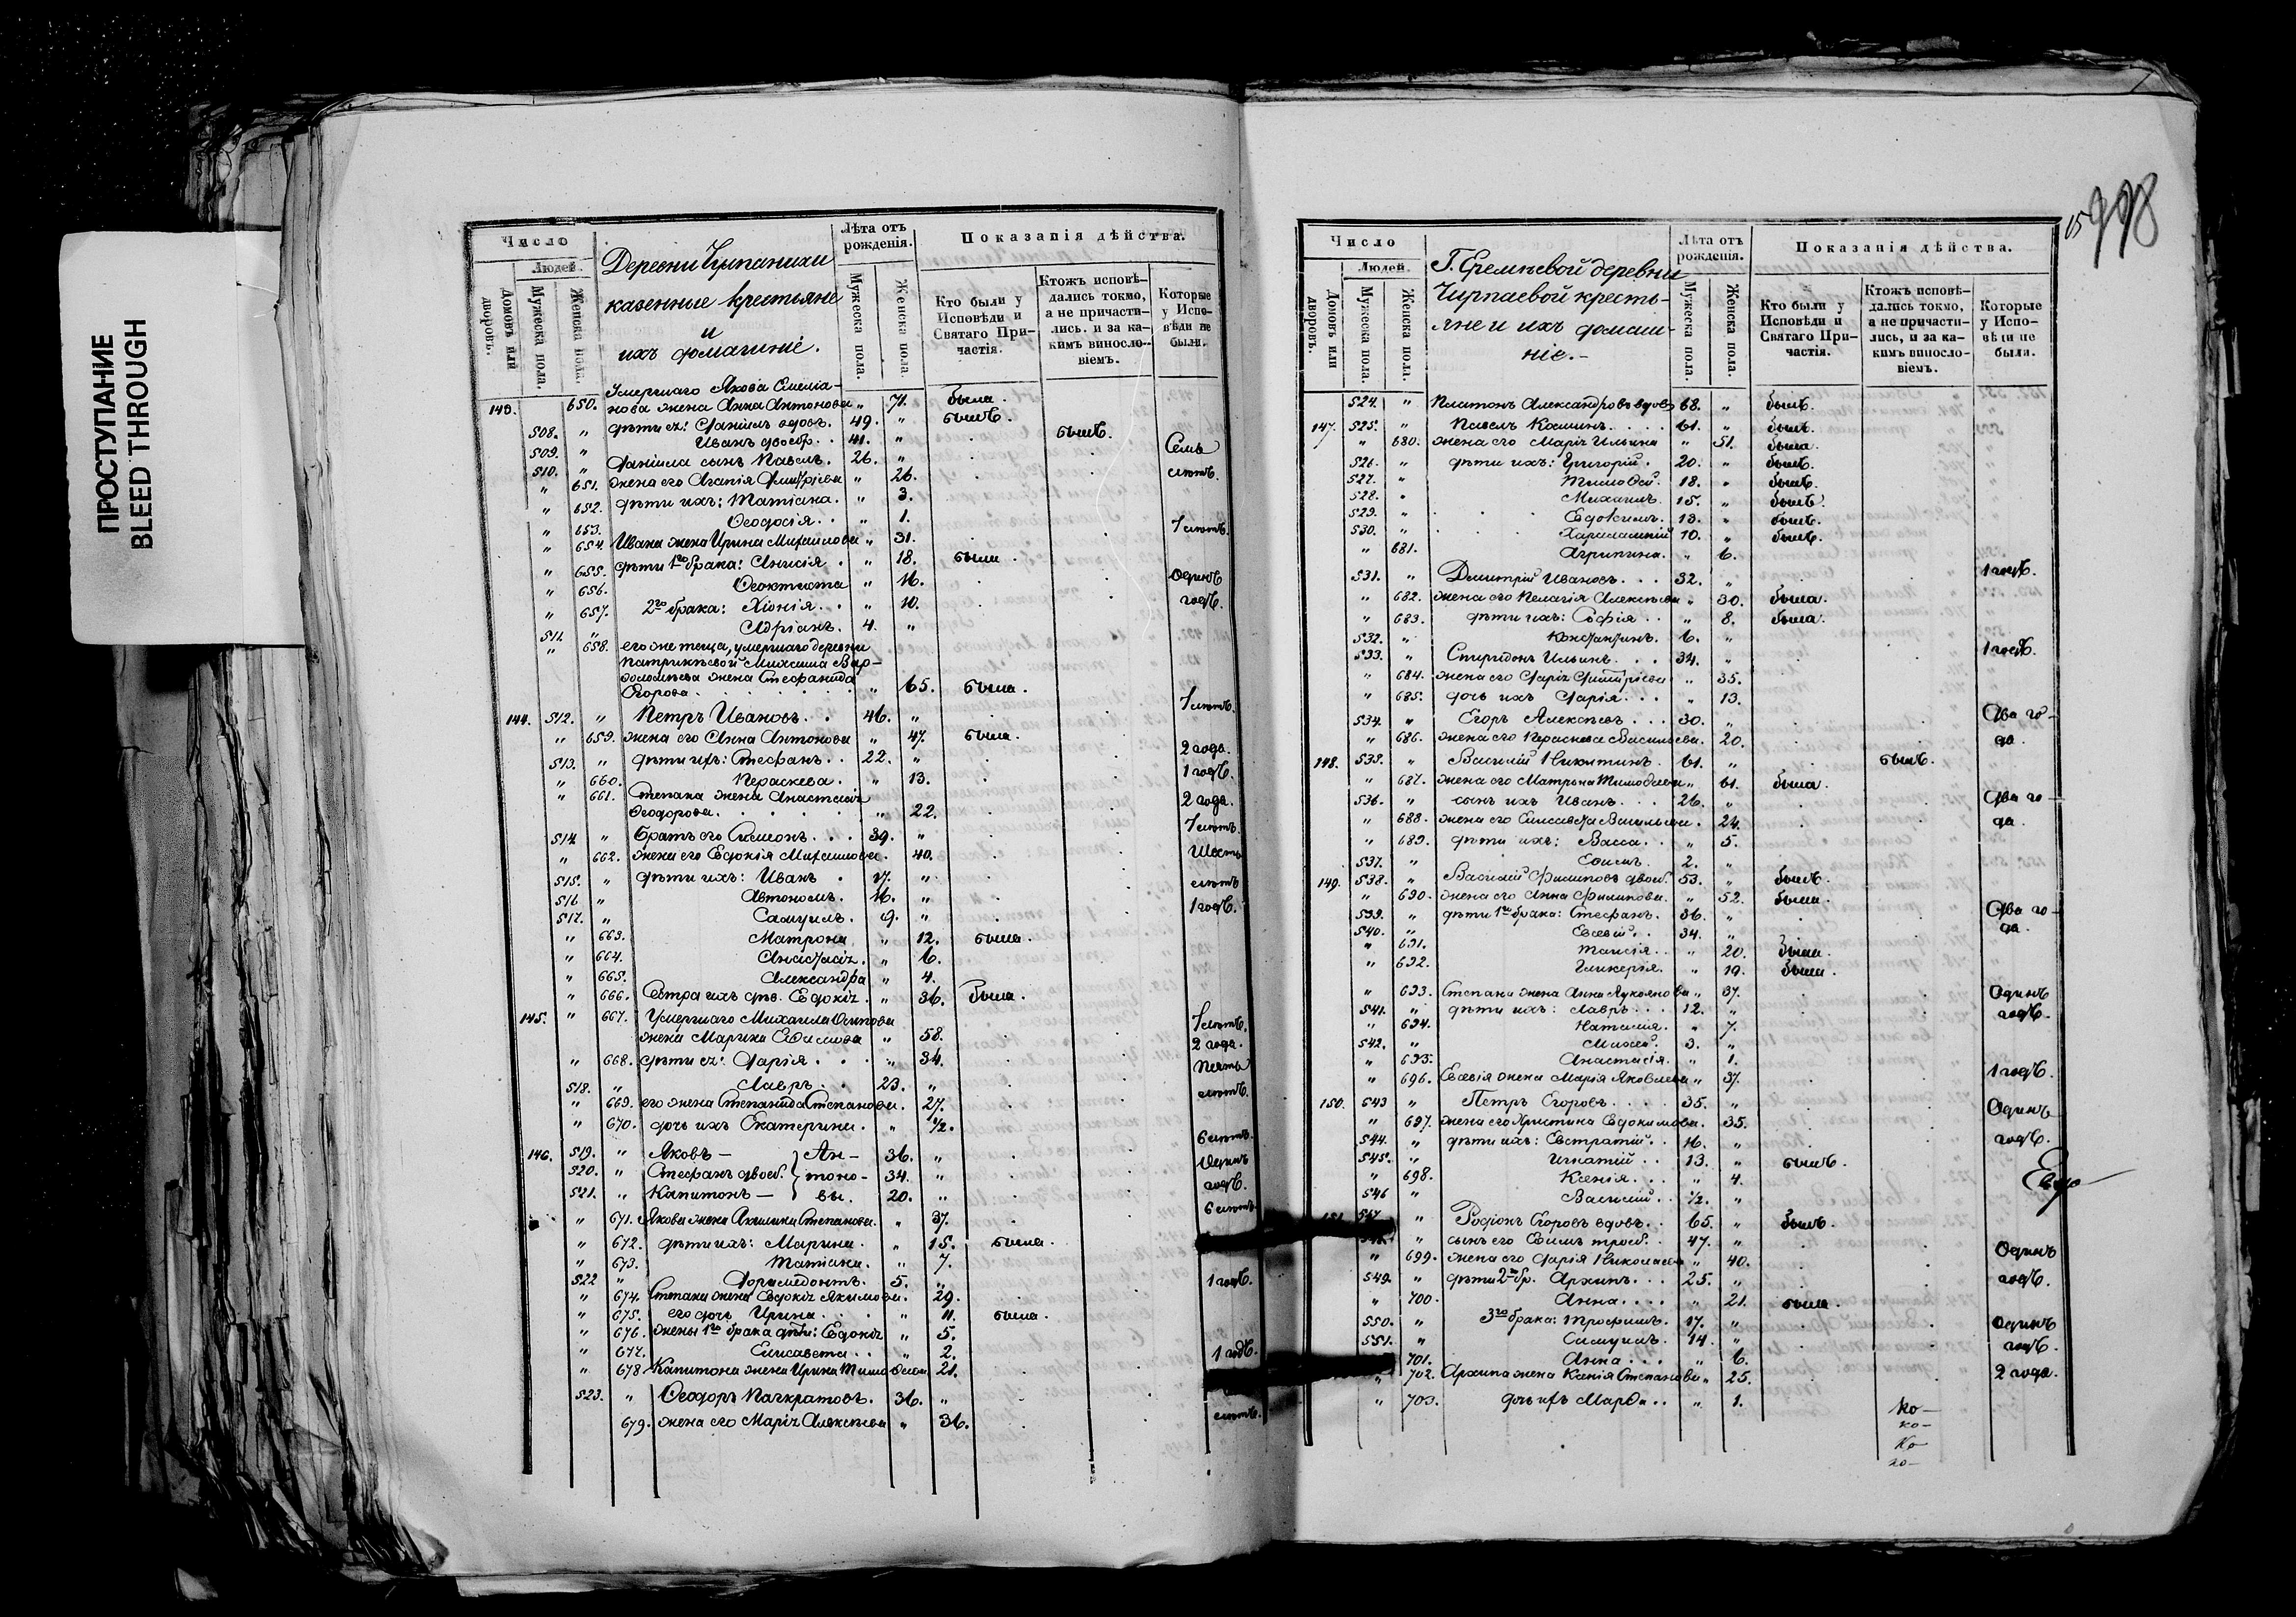 ПРОСТУПАНИЕ
BLEED THROUGH
Число
Людей.
Домовъ или дворовъ.
Мужеска пола.
Женска пола.
Деревни
казенные крестьяне
и
ихъ домашніе.
Лѣта отъ рожденія.
Мужеска пола.
Женска пола.
Показанія дѣйства.
Кто были у Исповѣди и Святаго Причастія.
Ктожъ исповѣдались токмо, а не причастились. и за какимъ винословіемъ.
Которые у Исповѣди не были.
Умершаго Якова Емелія-
143. 650. нова жена Анна Антонова „ 71. была.
508. „ дѣти ея: Даніилъ вдовъ. 49. „ былъ.
509. „ Иванъ двоеб. 41. „ былъ.
510. „ Даніила сынъ Павелъ. 26. „ Семь
„ 651. жена его Агапія Дмитріева „ 26. лѣтъ.
„ 652. дѣти ихъ: Татіана. „ 3.
„ 653. Ѳеодосія. „ 1.
„ 654. Ивана жена Ирина Михаилова „ 31. 7 лѣтъ.
„ 655. дѣти 1го брака: Анисія. „ 18. была.
„ 656. Ѳеоктиста „ 16.
„ 657. 2го брака: Хіонія. „ 10. Одинъ годъ.
511. „ Адріанъ. 4. „
„ 658. его же теща, умершаго деревни
Патрикѣевой Михаила Вар-
ѳоломѣева жена Стефанида
Егорова „ 65. была.
144. 512. „ Петръ Ивановъ. 46. „ 7 лѣтъ.
„ 659. жена его Анна Антонова „ 47. была.
513. „ дѣти ихъ: Стефанъ. 22. „ 2 года.
„ 660. Параскева. „ 13. 1 годъ.
„ 661. Степана жена Анастасія
Ѳеодорова. „ 22. 2 года.
514. „ братъ его Симеонъ. 39. „ 7 лѣтъ.
„ 662. жена его Евдокія Михаилова. 40. Шесть
515. „ дѣти ихъ: Иванъ 17. „ лѣтъ
516 „ Автономъ. 16. „
517. „ Самуилъ. 9. „ 1 годъ.
„ 663. Матрона „ 12. была.
„ 664. Анастасія. „ 6.
„ 665. Александра „ 4.
„ 666. Сестра ихъ дѣв. Евдокія. „ 36. была.
145. „ 667. Умершаго Михаила Осипова
жена Марина Ефимова „ 58. 7 лѣтъ.
„ 668. дѣти ея: Дарія. „ 34. 2 года.
518. „ Лавръ. 23. „ Пять
„ 669. его жена Степанида Степанова. 27. лѣтъ.
„ 670. дочь ихъ Екатерина. „ 1/2.
146. 519. „ Яковъ — Ан- 36. „ 6 лѣтъ.
520. „ Стефанъ двоеб. тоно- 34. „ Одинъ
521. „ Капитонъ — вы. 20. „ годъ.
„ 671. Якова жена Акилина Степанова. „ 37. 6 лѣтъ.
„ 672. дѣти ихъ: Марина. „ 15. была.
„ 673. Татіана. „ 7.
522 „ Доримедонтъ. 5. „
„ 674. Степана жена Евдокія Якимова. 29. 1 годъ.
„ 675. его дочь Ирина. „ 11. была.
„ 676. жены 1го брака дѣти: Евдокія „ 5.
„ 677. Елисавета. „ 2.
„ 678. Капитона жена Ирина Тимоѳеева 21. 1 годъ.
523. „ Ѳеодоръ Панкратовъ. 36. „
679. жена его Марія Алексѣева „ 36. лѣтъ.
998
Число
Людей.
Домовъ или дворовъ.
Мужеска пола.
Женска пола.
Г. Еремѣевой деревни
Чирпаевой кресть-
яне и ихъ домаш-
ніе.-
Лѣта отъ рожденія.
Мужеска пола.
Женска пола.
Показанія дѣйства.
Кто были у Исповѣди и Святаго Причастія.
Ктожъ исповѣдались токмо, а не причастились, и за какимъ винословіемъ.
Которые у Исповѣди не были.
524. „ Платонъ Александровъ вдовъ 68. „ былъ.
147. 525. „ Павелъ Козминъ. 61. „ былъ.
„ 680. жена его Марія Ильина „ 51. была.
526. „ дѣти ихъ: Григорій. 20. „ былъ.
527. „ Тимоѳей. 18. „ былъ.
528. „ Михаилъ. 15. „ былъ.
529. „ Евдокимъ. 13. „ былъ.
530. „ Харалампій 10. „ былъ.
„ 681. Агрипина. „ 6.
531. „ Дмитрій Ивановъ. 32. „ 1 годъ.
„ 682. жена его Пелагія Алексѣева „ 30. была.
„ 683. дѣти ихъ: Софія. „ 8. была.
532. „ Константинъ. 6. „
533. „ Спиридонъ Ильинъ. 34. „ 1 годъ.
„ 684. жена его Дарія Дмитріева „ 35.
„ 685. дочь ихъ Дарія. „ 13.
534. „ Егоръ Алексѣевъ. 30. „ Два го-
„ 686. жена его Параскева Васильева. 20. да.
148. 535. „ Василій Никитинъ. 61. „ былъ.
„ 687. жена его Матрона Тимоѳеева „ 61. была.
536. „ сынъ ихъ Иванъ. 26. „ Два го-
„ 688. жена его Елисавета Васильева. 24. да.
„ 689. дѣти ихъ: Васса. „ 5.
537. „ Ефимъ. 2. „
149. 538. „ Василій Филиповъ двоеб. 53. „ былъ.
„ 690. жена его Анна Филипова. „ 52. была.
539. „ дѣти 1го брака: Стефанъ. 36. „ Два го-
540. „ Евсевій. 34. „ да.
„ 691. Таисія. „ 20. была.
„ 692. Гликерія. „ 19. была.
„ 693. Степана жена Анна Лукоянова „ 37. Одинъ
541. „ дѣти ихъ: Лавръ. 12. „ годъ.
„ 694. Наталія. „ 7.
542. „ 3. „
„ 695. Анастасія. „ 1.
„ 696. Евсевія жена Марія Яковлева „ 37. 1 годъ.
150. 543 „ Петръ Егоровъ. 35. „ Одинъ
„ 697. жена его Христина Евдокимова. 35.
544. „ дѣти ихъ: Евстратій. 16. „ годъ.
545. „ Игнатій. 13. „ былъ.
„ 698. Ксенія. „ 4.
546 „ Василій. 1/2. „
547. „ Родіонъ Егоровъ вдовъ. 65. „ былъ.
„ сынъ его Емил. троеб. 47. „
„ 699. жена его Дарія Николаева „ 40. Одинъ
549. „ дѣти 2го бр. Архипъ. 25. „ годъ.
„ 700. Анна. „ 21. была.
550. „ 3го брака: Трофимъ. 17. „ Одинъ
551. „ Самуилъ. 14. „ годъ.
701. Анна. „ 6.
„ 702. Архипа жена Ксенія Степанова „ 25. 2 года.
„ 703. дочь ихъ Марѳа. „ 1.
ко-
ко-
ко-
ко-